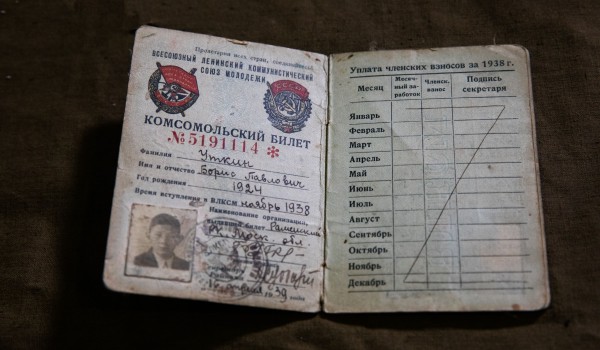 Пролетарии всех стран, соединяйтесь!
ВСЕСОЮЗНЫЙ ЛЕНИНСКИЙ КОММУНИСТИЧЕСКИЙ
СОЮЗ МОЛОДЕЖИ
КОМСОМОЛЬСКИЙ БИЛЕТ
№ 5191114 *
Фамилия Уткин
Имя и отчество Борис Павлович
Год рождения 1924
Время вступления в ВЛКСМ ноябрь 1938
Наименование организации,
выдавшей билет
обл.
Уплата членских взносов за 1938 г.
Месяц
Месяч-
ный за-
работок
Членск.
взнос
Подпись
секретаря
Январь
Февраль
Март
Апрель
Май
Июнь
Июль
Август
Сентябрь
Октябрь
Ноябрь
Декабрь